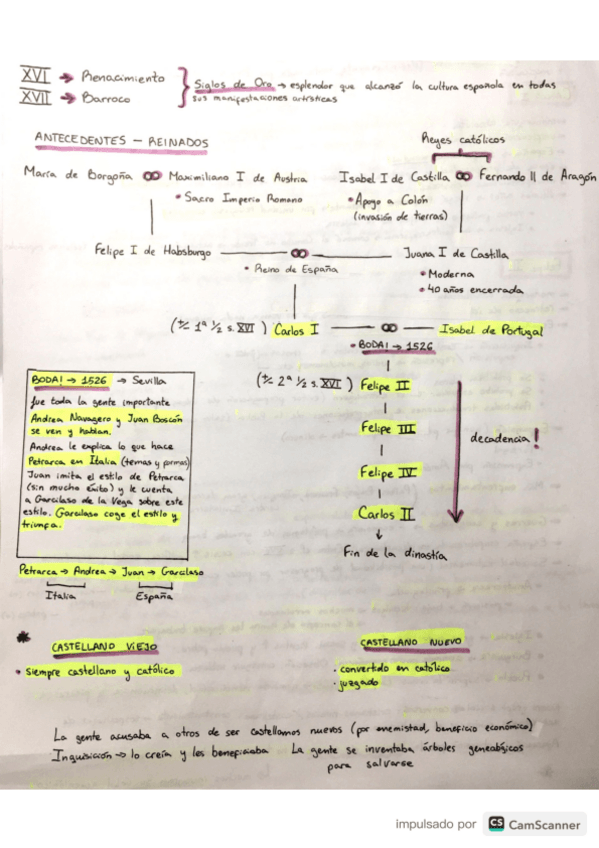 XVI → Renacimiento
XVII → Barroco
Siglos de Oro → esplendor que alcanzó la cultura española en todas
sus manifestaciones artísticas
ANTECEDENTES – REINADOS
Reyes católicos
María de Borgoña ∞ Maximiliano I de Austria
• Sacro Imperio Romano
Isabel I de Castilla ∞ Fernando II de Aragón
• Apoyo a Colón
(invasión de tierras)
Felipe I de Habsburgo ∞ Juana I de Castilla
• Reino de España
• Moderna
• 40 años encerrada
(+/- 1ª 1/2 s. XVI) Carlos I ∞ Isabel de Portugal
• BODA! → 1526
(+/- 2ª 1/2 s. XVI) Felipe II
Felipe III
Felipe IV
Carlos II
↓
Fin de la dinastía
decadencia!
BODA! → 1526 → Sevilla
fue toda la gente importante
Andrea Navagero y Juan Boscán
se ven y hablan.
Andrea le explica lo que hace
Petrarca en Italia (temas y formas)
Juan imita el estilo de Petrarca
(sin mucho éxito) y le cuenta
a Garcilaso de la Vega sobre este
estilo. Garcilaso coge el estilo y
triunfa.
Petrarca → Andrea → Juan → Garcilaso
Italia España
* CASTELLANO VIEJO
• siempre castellano y católico
CASTELLANO NUEVO
• convertido en católico
• juzgado
La gente acusaba a otros de ser castellanos nuevos (por enemistad, beneficio económico)
Inquisición → lo creía y les beneficiaba La gente se inventaba árboles genealógicos
para salvarse
impulsado por CS CamScanner